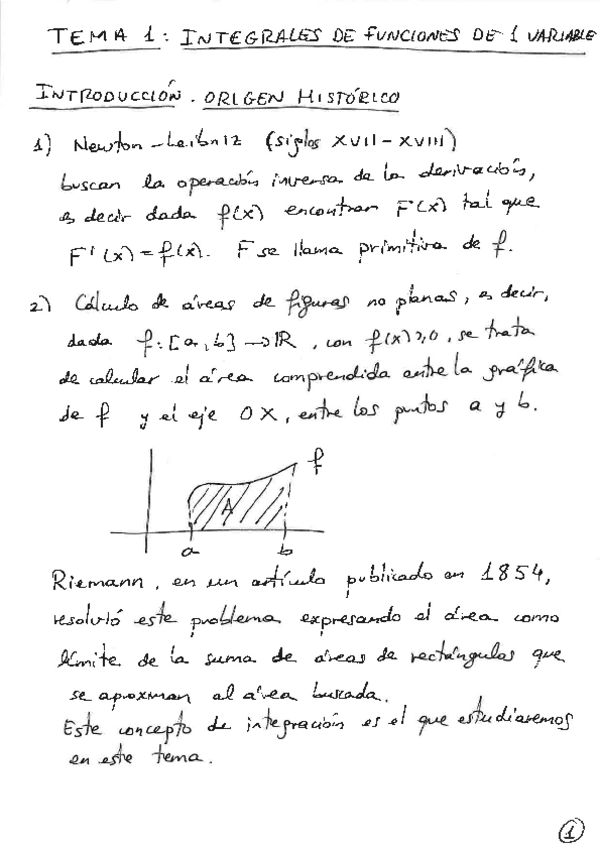 TEMA 1: INTEGRALES DE FUNCIONES DE 1 VARIABLE
INTRODUCCIÓN. ORIGEN HISTÓRICO
1) Newton-Leibniz (siglos XVII-XVIII)
buscan la operación inversa de la derivación,
es decir dada f(x) encontrar F(x) tal que
F'(x)=f(x). F se llama primitiva de f.
2) Cálculo de áreas de figuras no planas, es decir,
dada f:[a,b]→ℝ, con f(x)≥0, se trata
de calcular el área comprendida entre la gráfica
de f y el eje OX, entre los puntos a y b.
f
A
a b
Riemann, en un artículo publicado en 1854,
resolvió este problema expresando el área como
límite de la suma de áreas de rectángulos que
se aproxman al área buscada.
Este concepto de integración es el que estudiaremos
en este tema.
1